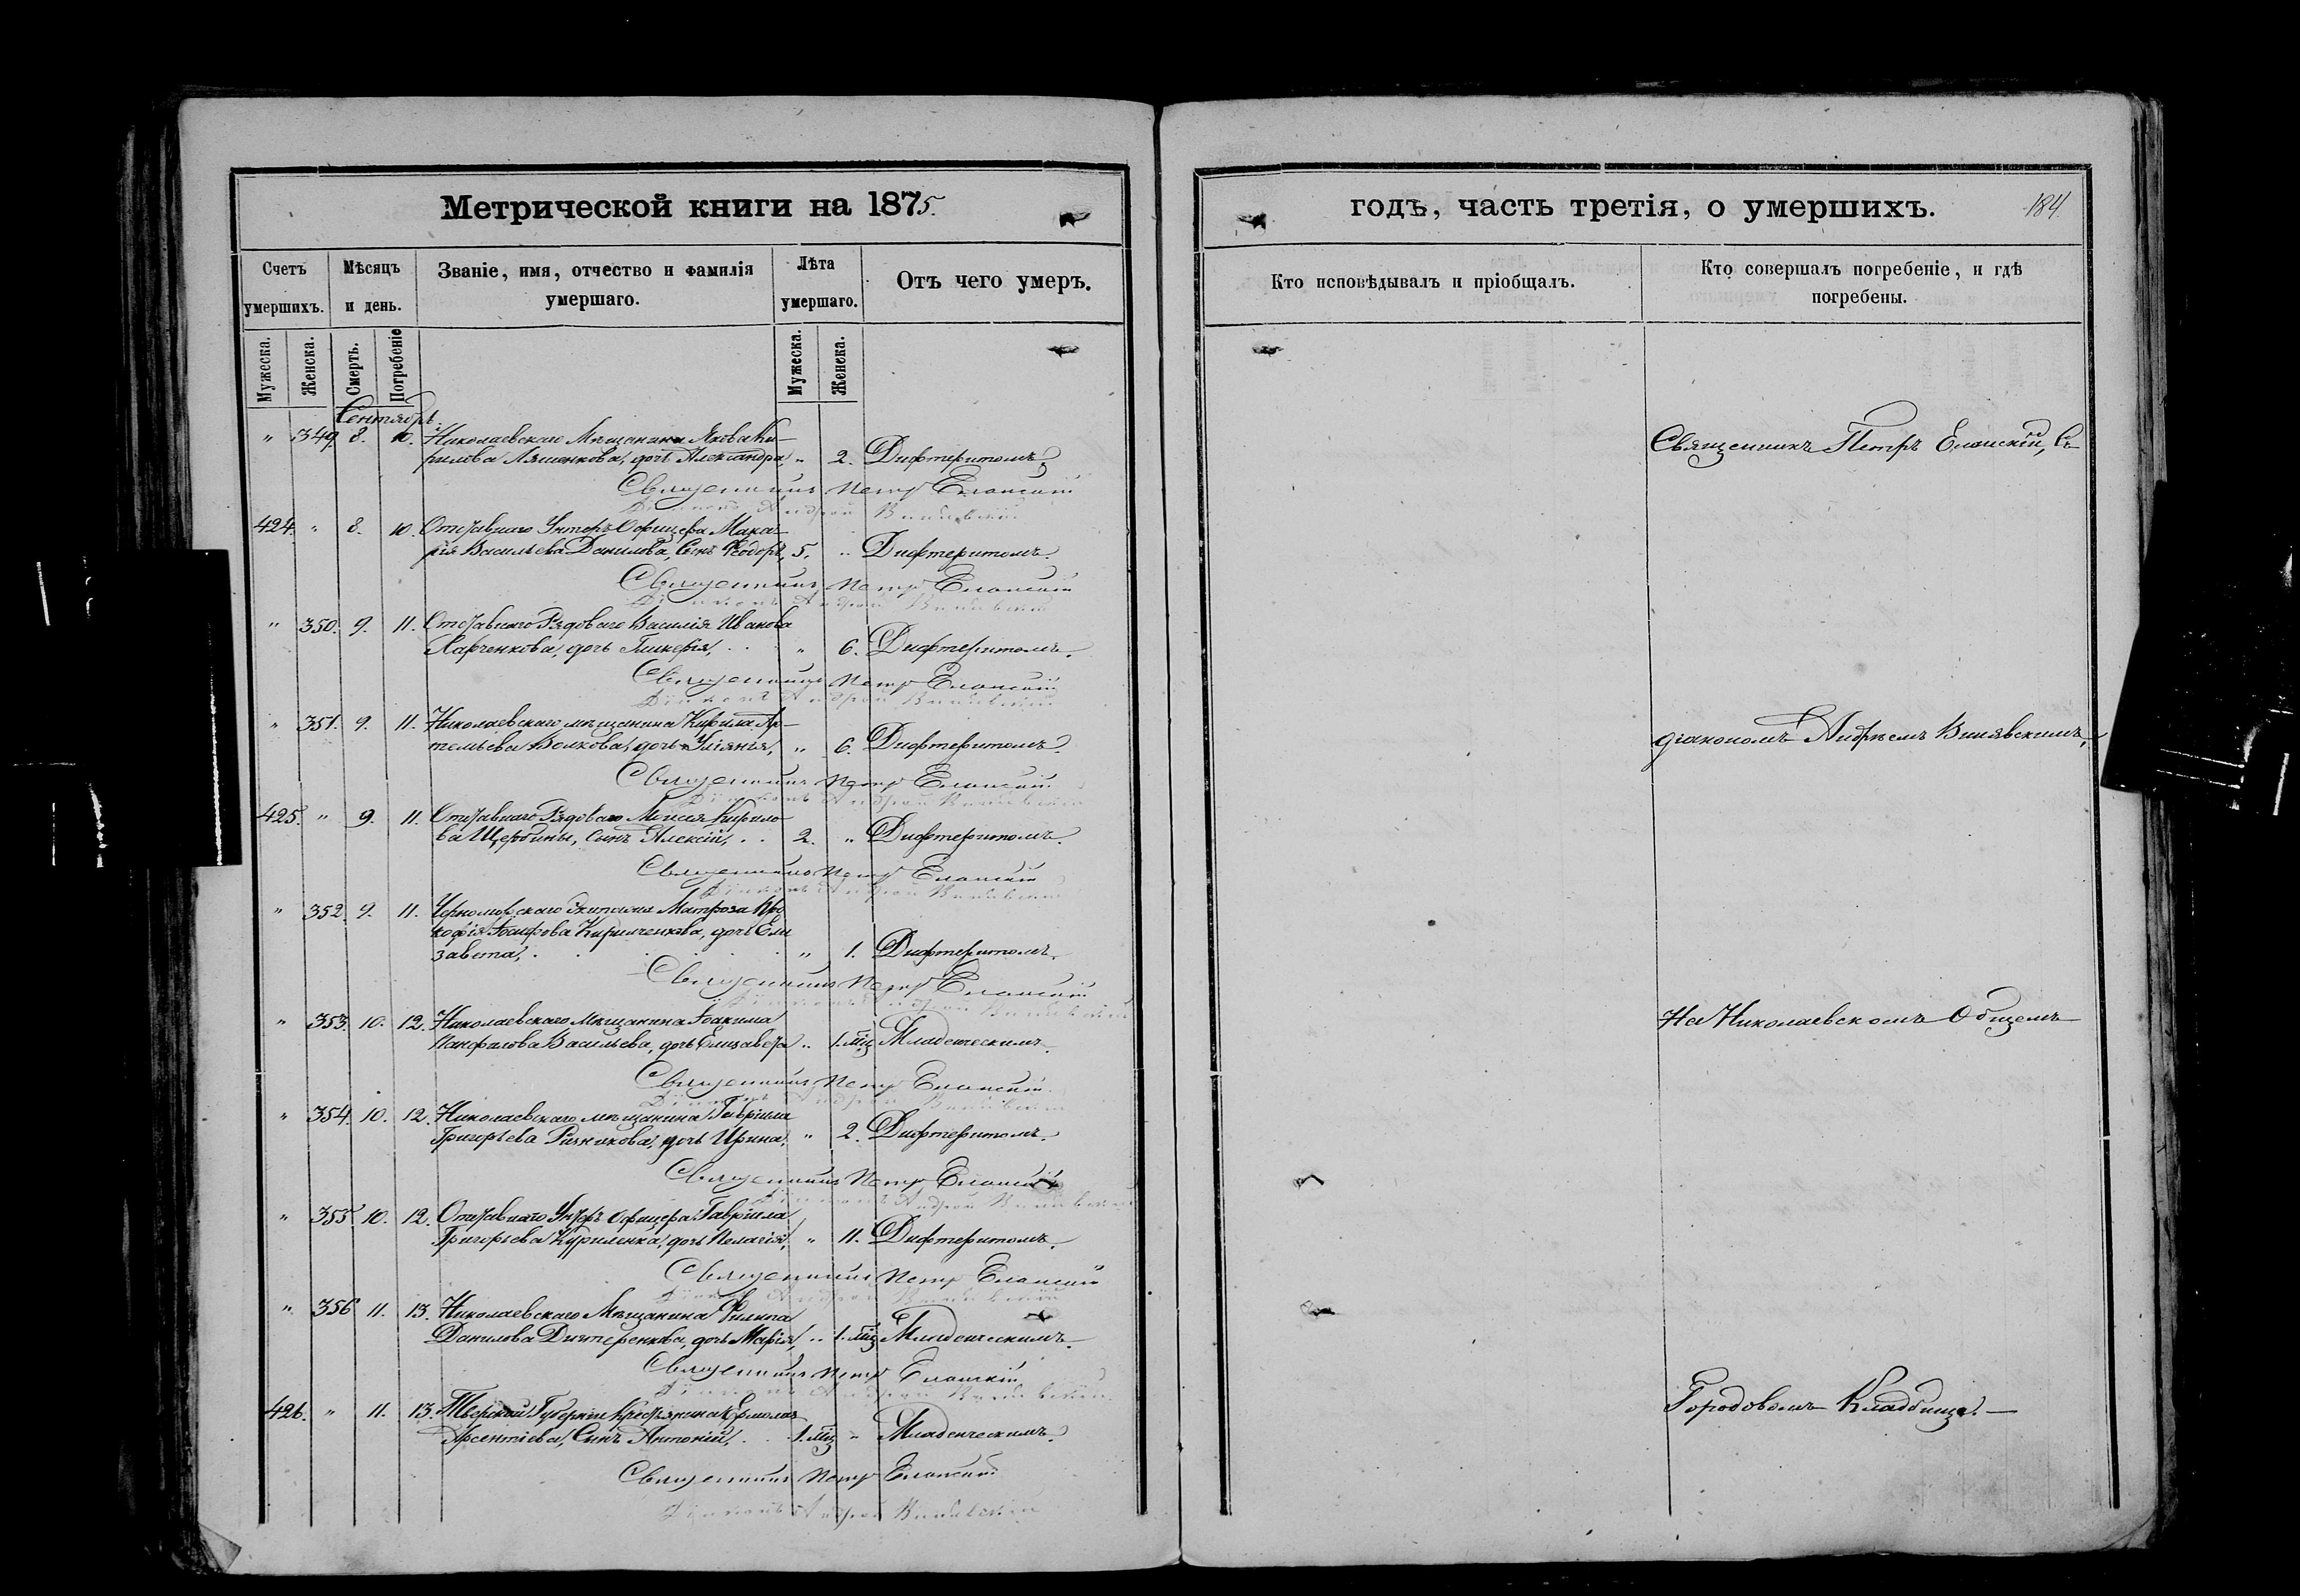 Метрической книги на 1875.
Счетъ умершихъ.
Мѣсяцъ и день.
Званіе, имя, отчество и фамилія умершаго.
Лѣта умершаго.
Отъ чего умеръ.
Мужеска.
Женска.
Смерть.
Погребеніе
Мужеска.
Женска.
Сентябрь
" 349. 8. 10. Николаевскаго Мѣщанина Якова Ки-
рилова Ляшенкова, дочь Александра, " 2. Дифтеритомъ.
Священникъ Петръ Еланскій
Діаконъ Андрей Винявскій
424. " 8. 10. Отставнаго Унтеръ Офицера Мака-
рія Васильева Данилова, Сынъ Ѳеодоръ, 5. " Дифтеритомъ.
Священникъ Петръ Еланскій
Діаконъ Андрей Винявскій
" 350. 9. 11. Отставнаго Рядоваго Василія Иванова
Харченкова, дочь Гликерія, " 6. Дифтеритомъ.
Священникъ Петръ Еланскій
Діаконъ Андрей Винявскій
" 351. 9. 11. Николаевскаго мѣщанина Кирила Ар-
темьева Волкова, дочь Уліянія, " 6. Дифтеритомъ.
Священникъ Петръ Еланскій
Діаконъ Андрей Винявскій
425. " 9. 11. Отставнаго Рядоваго Моисея Кирило-
ва Щербины, Сынъ Алексій, . . 2. " Дифтеритомъ.
Священникъ Петръ Еланскій
Діаконъ Андрей Винявскій
" 352. 9. 11. Черноморскаго Экипажа Матроза Про
кофія Кириченкова, дочь Ели
завета, " 1. Дифтеритомъ.
Священникъ Петръ Еланскій
Діаконъ Андрей Винявскій
" 353. 10. 12. Николаевскаго Мѣщанина Іоакима
Васильева, дочь Елизавета " 1. мѣц Младенческимъ.
Священникъ Петръ Еланскій
Діаконъ Андрей Винявскій
" 354. 10. 12. Николаевскаго мѣщанина Гавріила
Григорьева Резникова, дочь Ирина, " 2. Дифтеритомъ.
Священникъ Петръ Еланскій
Діаконъ Андрей Винявскій
" 355 10. 12. Отставнаго Унтеръ Офицера Гавріила
Григорьева Куриленка, дочь Пелагія, " 11. Дифтеритомъ.
Священникъ Петръ Еланскій
Діаконъ Андрей Винявскій
" 356 11. 13. Николаевскаго Мѣщанина Филипа
Данилова, дочь Марія, " 1. мѣц Младенческимъ.
Священникъ Петръ Еланскій
Діаконъ Андрей Винявскій
426. " 11. 13. Тверской Губерніи Крестьянина Ермолая
Арсентіева, Сынъ Антоній, . . 1. мѣц " Младенческимъ.
Священникъ Петръ Еланскій
Діаконъ Андрей Винявскій
годъ, часть третія, о умершихъ.
184.
Кто исповѣдывалъ и пріобщалъ.
Кто совершалъ погребеніе, и гдѣ погребены.
Священникъ Петръ Еланскій, съ
діакономъ Андреемъ Винявскимъ,
На Николаевскомъ Общемъ
Городовомъ Кладбище.—